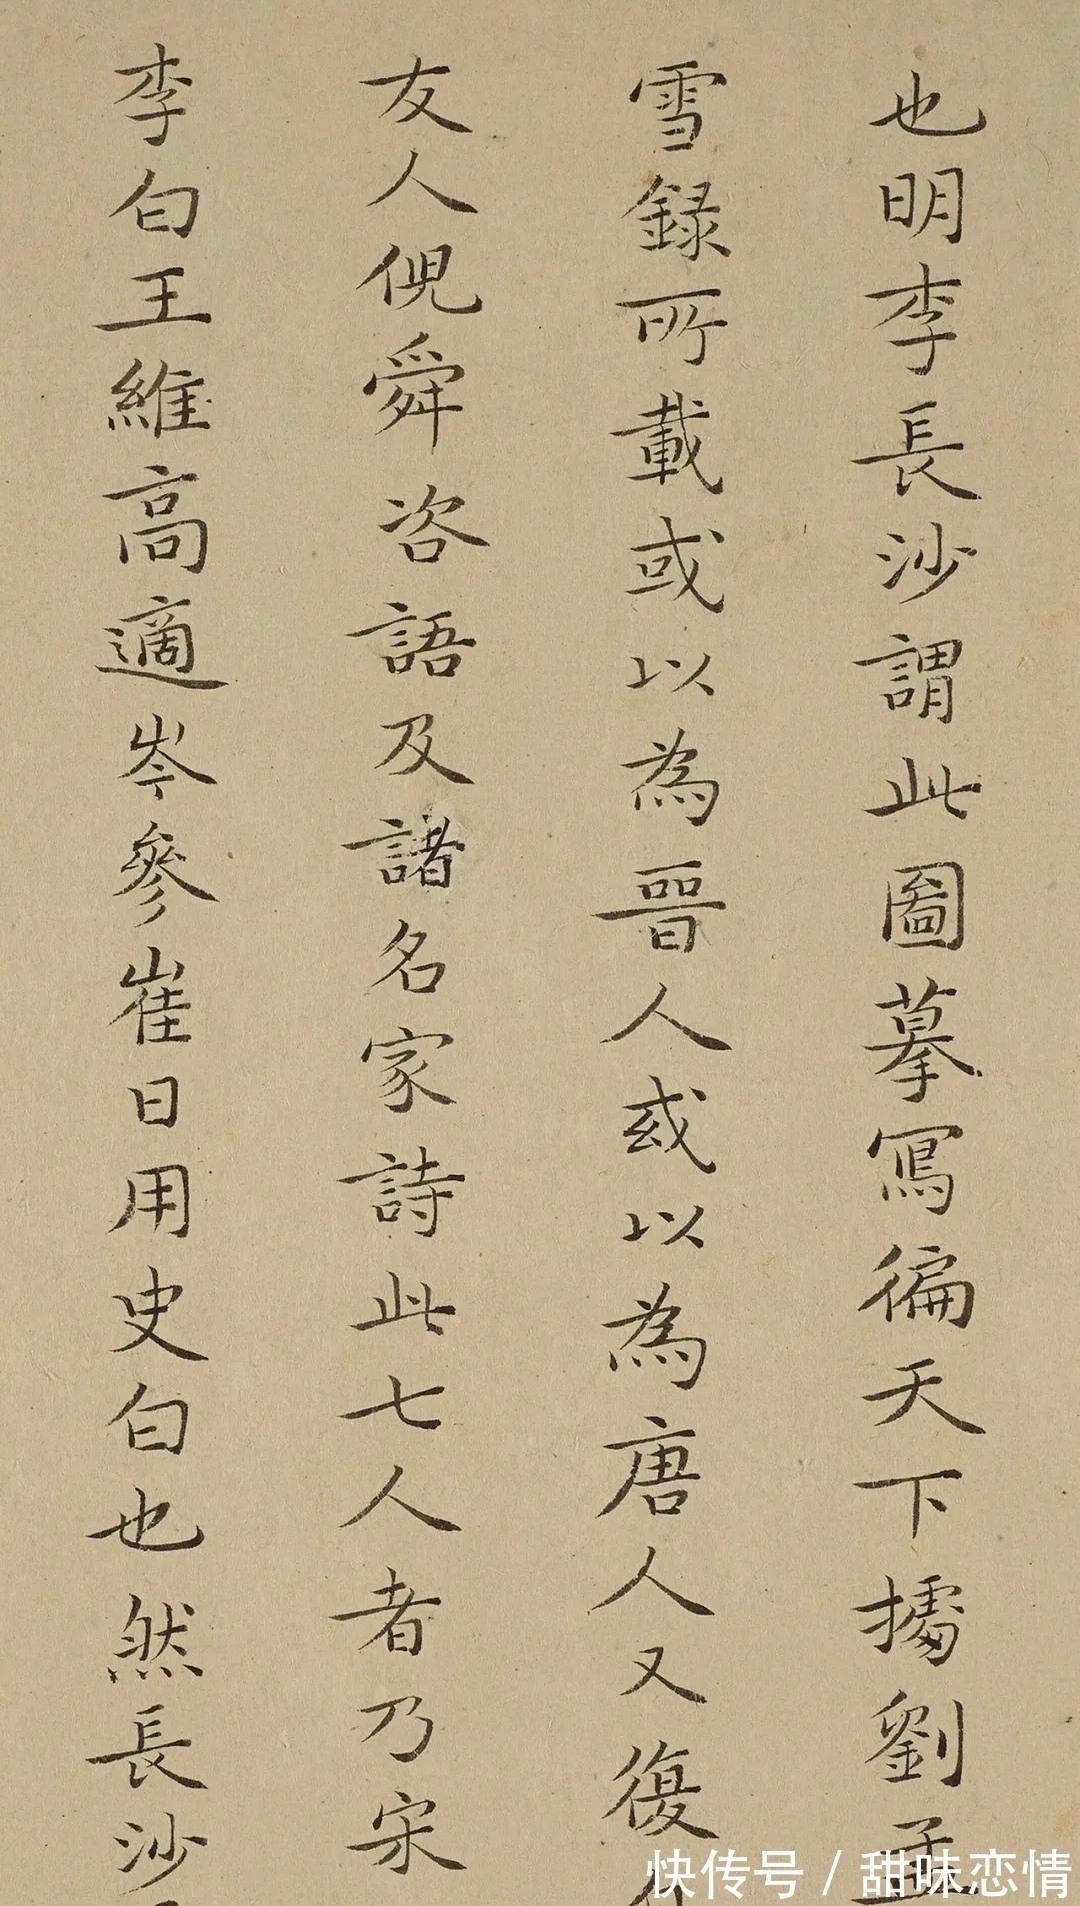 也明李長沙謂此圖摹寫徧天下據劉孟
雪錄所載或以為晉人或以為唐人又復
友人倪舜咨語及諸名家詩此七人者乃宋
李白王維高適岑參崔日用史白也然長沙
快传号/甜味恋情